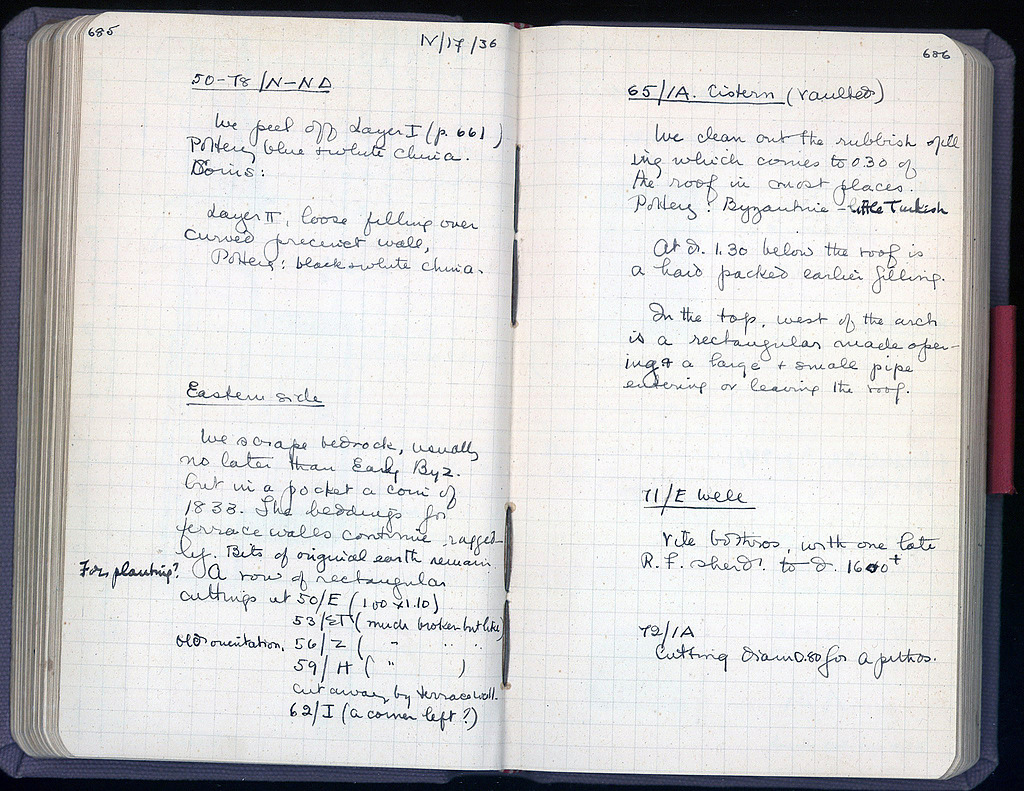 685
IV/17/36
50-78/N-NΔ
We peel off Layer I (p. 661)
Pottery blue + white china.
Coins:
Layer II, loose filling over
curved precinct wall,
Pottery: black + white china.
Eastern side
We scrape bedrock, usually
no later than Early Byz.
but in a pocket a coin of
1833. The beddings for
terrace walls continue ragged-
ly. Bits of original earth remain.
For planting? A row of rectangular
cuttings at 50/E (1.00 x 1.10)
53/ΣΤ (much broken but like)
old orientation. 56/Z ( " " "
59/H ( " )
cut away by terrace wall.
62/I (a corner left?)
686
65/IA. Cistern (vaulted)
We clean out the rubbish fill
ing which comes to 0.30 of
the roof in most places.
Pottery: Byzantine - little Turkish
At d. 1.30 below the roof is
a hard packed earlier filling.
In the top, west of the arch
is a rectangular made open-
ing & a large + small pipe
entering or leaving the roof.
71/E Well
Vite bothros, with one late
R.F. sherd! to d. 1600+
72/IA
Cutting diam 0.80 for a pithos.